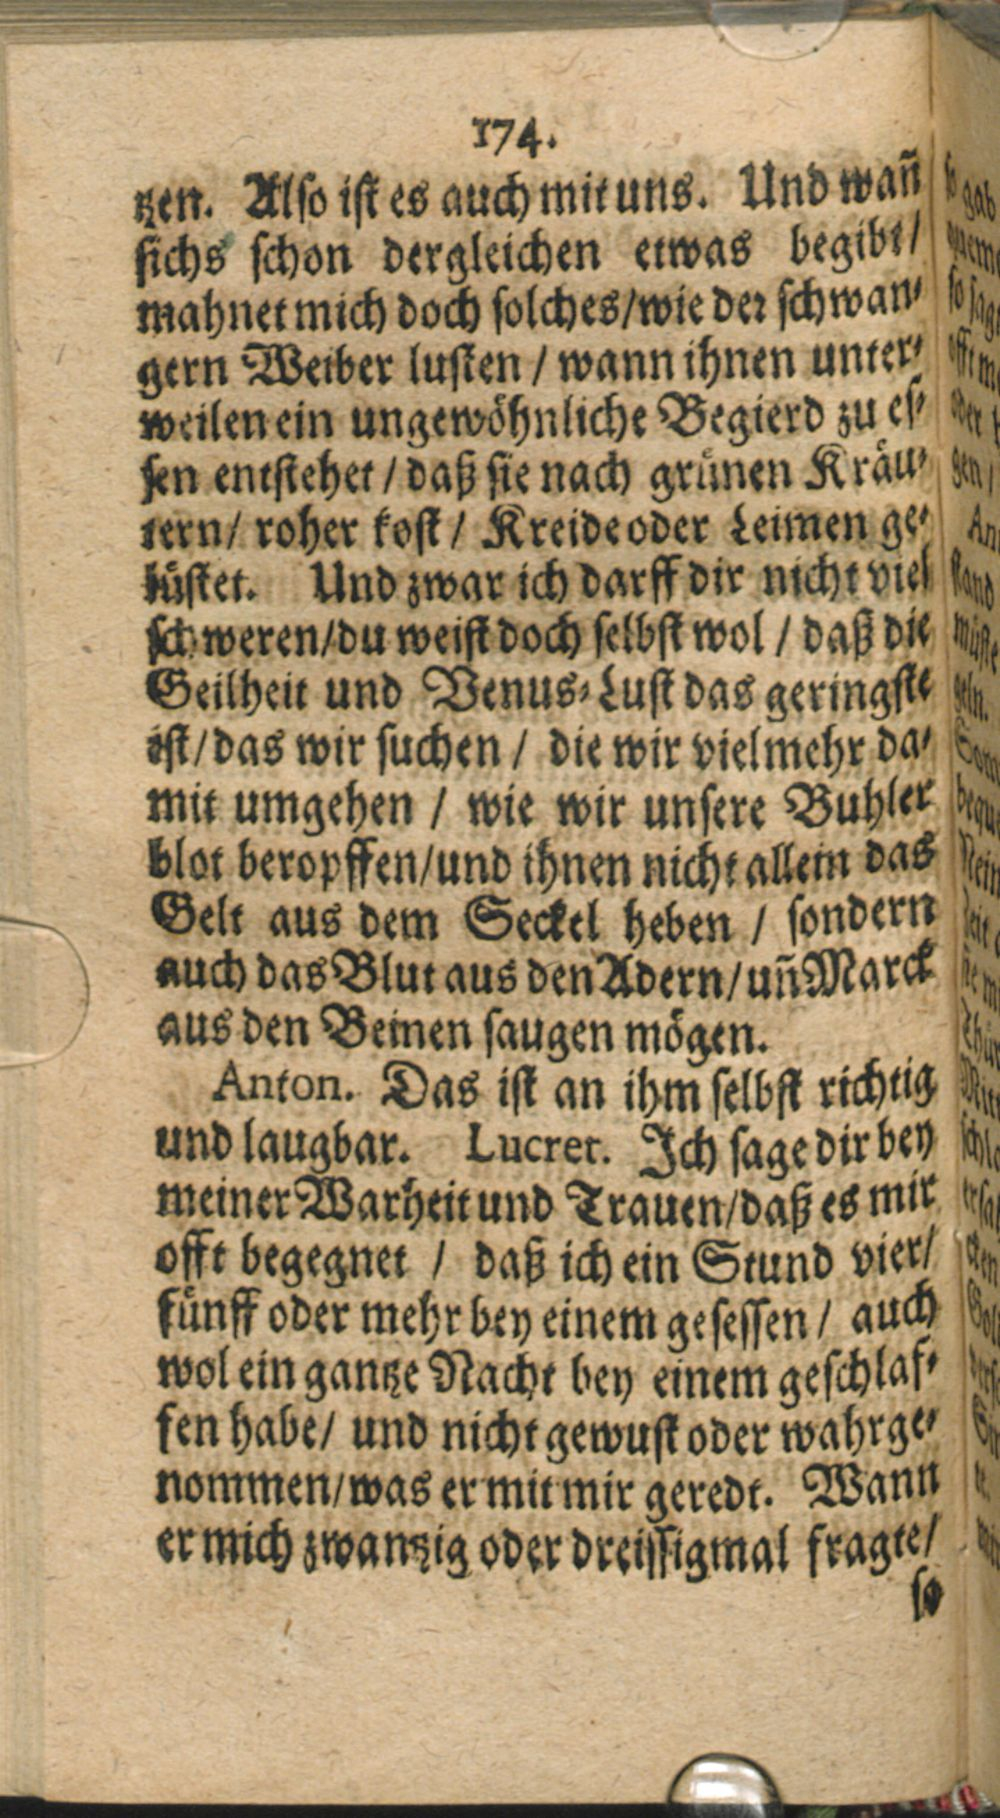 174.
tzen. Also ist es auch mit uns. Und wañ
sichs schon dergleichen etwas begibt/
mahnet mich doch solches/wie der schwan-
gern Weiber lusten / wann ihnen unter-
weilen ein ungewöhnliche Begierd zu es-
sen entstehet / daß sie nach grünen Kräu-
tern/ roher kost / Kreide oder Leimen ge-
lüstet. Und zwar ich darff dir nicht viel
schweren/du weist doch selbst wol / daß die
Geilheit und Venus-Lust das geringste
ist/das wir suchen / die wir vielmehr da-
mit umgehen / wie wir unsere Buhler
blot beropffen/und ihnen nicht allein das
Gelt aus dem Seckel heben / sondern
auch das Blut aus den Adern/uñ Marck
aus den Beinen saugen mögen.
Anton. Das ist an ihm selbst richtig
und laugbar. Lucret. Ich sage dir bey
meiner Warheit und Trauen/daß es mir
offt begegnet / daß ich ein Stund vier/
fünff oder mehr bey einem gesessen / auch
wol ein gantze Nacht bey einem geschlaf-
fen habe/ und nicht gewust oder wahrge-
nommen/was er mit mir geredt. Wann
er mich zwantzig oder dreissigmal fragte/
so